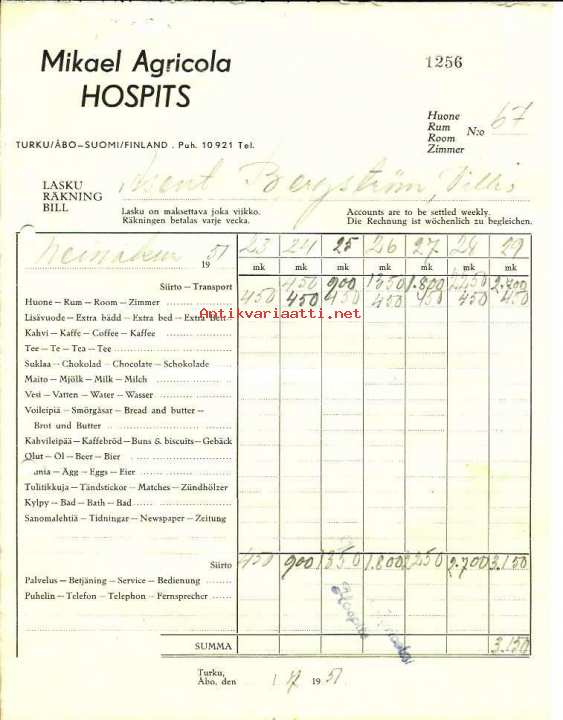 Mikael Agricola
HOSPITS
1256
Huone
Rum
Room
Zimmer
N:o 67
TURKU/ÅBO–SUOMI/FINLAND . Puh. 10 921 Tel.
LASKU
RÄKNING
BILL
Bergström,
Lasku on maksettava joka viikko.
Räkningen betalas varje vecka.
Accounts are to be settled weekly.
Die Rechnung ist wöchenlich zu begleichen.
Heinäkuu 1951 23 24 25 26 27 28 29
mk mk mk mk mk mk mk
Siirto – Transport 450 900 1350 1.800 2250 2.700
Huone – Rum – Room – Zimmer 450 450 450 450 450 450 450
Antikvariaatti.net
Lisävuode – Extra bädd – Extra bed – Extra Bett
Kahvi – Kaffe – Coffee – Kaffee
Tee – Te – Tea – Tee
Suklaa – Chokolad – Chocolate – Schokolade
Maito – Mjölk – Milk – Milch
Vesi – Vatten – Water – Wasser
Voileipiä – Smörgåsar – Bread and butter –
Brot und Butter
Kahvileipää – Kaffebröd – Buns & biscuits – Gebäck
Olut – Öl – Beer – Bier
unia – Ägg – Eggs – Eier
Tulitikkuja – Tändstickor – Matches – Zündhölzer
Kylpy – Bad – Bath – Bad
Sanomalehtiä – Tidningar – Newspaper – Zeitung
Siirto 450 900 1350 1.800 2250 2.700 3.150
Palvelus – Betjäning – Service – Bedienung
Puhelin – Telefon – Telephon – Fernsprecher
SUMMA 3.150
Turku,
Åbo, den
1951